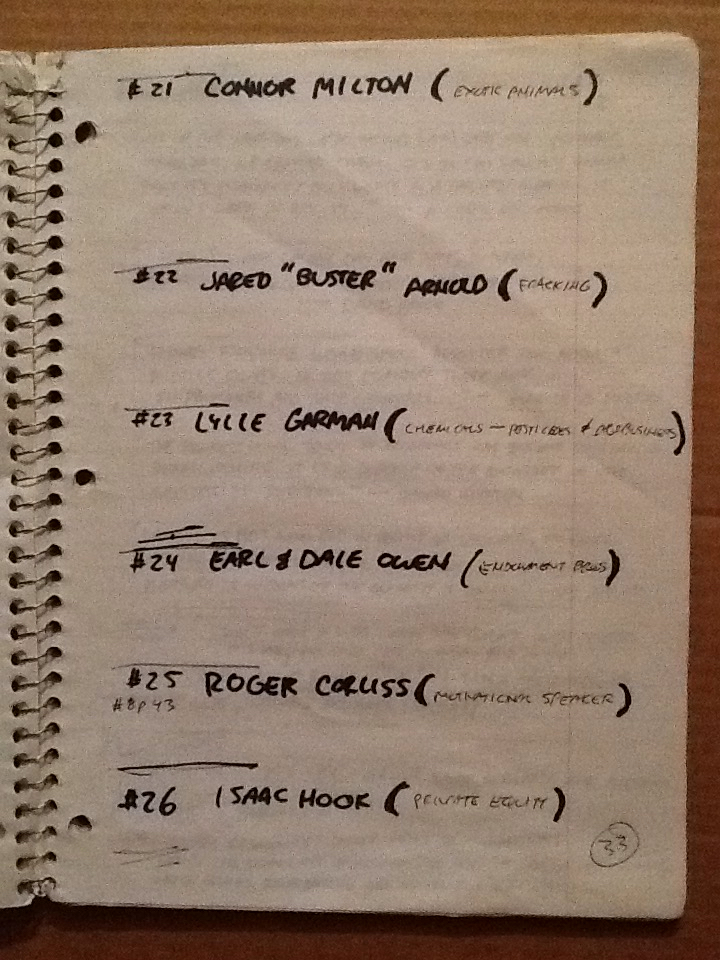 #21 CONNOR MILTON (EXOTIC ANIMALS)
#22 JARED "BUSTER" ARNOLD (FRACKING)
#23 LYLLE GARMAN (CHEMICALS — PESTICIDES & AGRIBUSINESS)
#24 EARL & DALE OWEN (ENDOWMENT PILLS)
#25 ROGER CORLISS (MOTIVATIONAL SPEAKER)
#8P 43
#26 ISAAC HOOK (PRIVATE EQUITY)
33